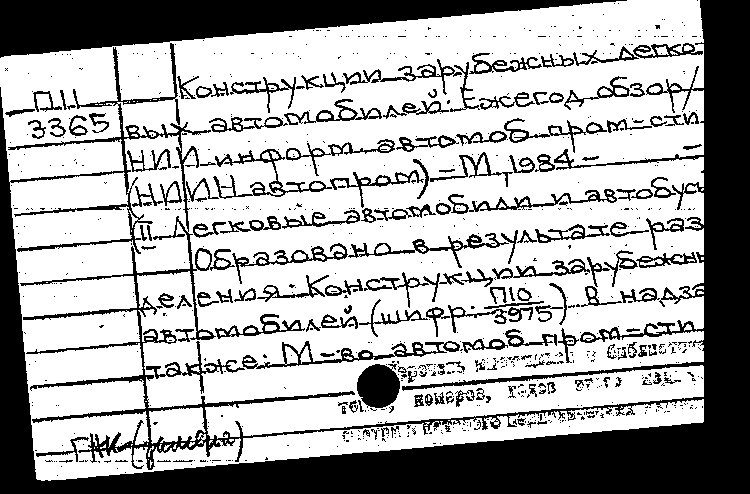 П11
3365
Конструкции зарубежных легко-
вых автомобилей: Ежегод. обзор/
НИИ информ. автомоб. пром-сти
(НИИН автопром) – М., 1984 –        . –
(II. Легковые автомобили и автобус
Образовано в результате раз
деления: Конструкции зарубежн
автомобилей (шифр: П10/3975) В надза
также: М-во автомоб. пром-сти
в библиоте
томов, номеров, годов
смотри
ГНК